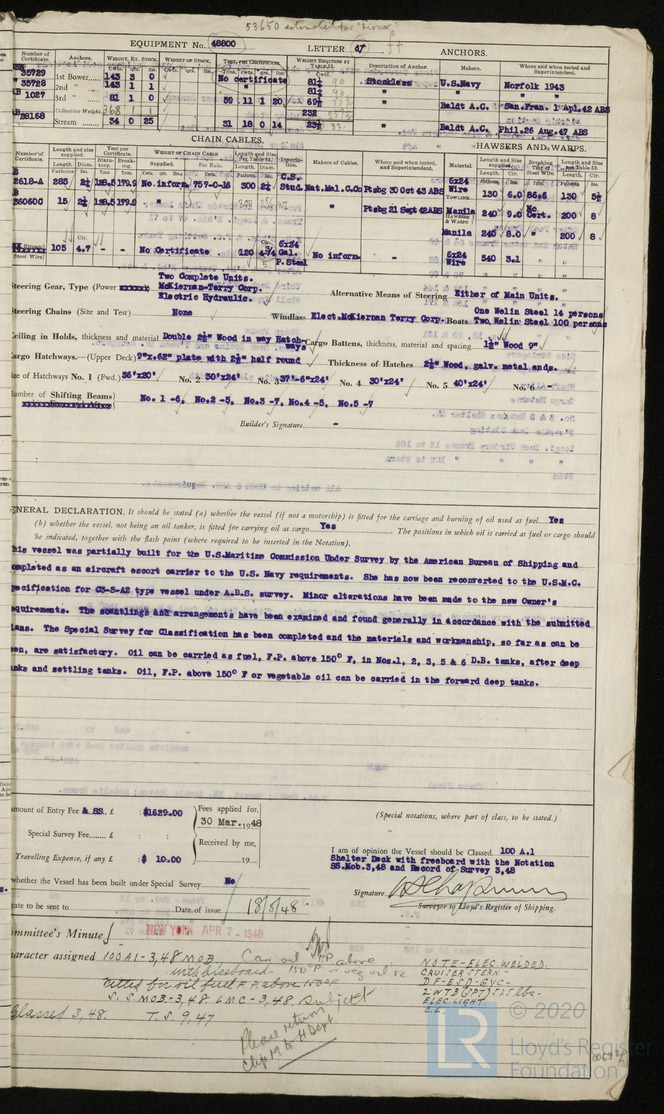 53650 estimated for "Scouw"
EQUIPMENT No. 48800 LETTER d† ANCHORS.
Number of Certificate. Anchors. WEIGHT, EX. STOCK. WEIGHT OF STOCK. TEST, PER CERTIFICATE. WEIGHT REQUIRED BY TABLE 53. Description of Anchor. Makers. Where and when tested and Superintendent.
35729 1st Bower 143 3 0 No certificate 81½ Stockless U.S.Navy Norfolk 1943
35728 2nd " 143 1 1 " 81½ " " "
1027 3rd " 81 1 0 59 11 1 20 69½ " Baldt A.C. San.Fran. 1 Apl.42 ABS
Collective Weight 368 232
28168 Stream 34 0 25 31 18 0 14 Baldt A.C. Phil.26 Aug.47 ABS
CHAIN CABLES. HAWSERS AND WARPS.
Number of Certificate. Length and size supplied. Test per Certificate. WEIGHT OF CHAIN CABLE Length and Size Makers of Cables. Where and when tested, and Superintendent. Material. Length and Size supplied. Breaking Test of Steel Wire. Length and Size
Fathoms Ins. Supplied. Per Rule. C.S.
2618-A 285 2½ 128.5 179.9 No.inform 757-0-16 300 2½ Stud. Nat.Mal.C.Co Ptsbg 30 Oct 43 ABS 6x24 Wire 130 6.0 86.6 130 5½
60600 15 2½ 128.5 179.9 Ptsbg 21 Sept 42ABS Manila 240 9.0 No Cert. 200 8
Manila 240 8.0 " 200 8
105 4.7 - - No Certificate 120 4¾ 6x24 Gal. P.Steel No inform - 6x24 Wire 540 3.1
Two Complete Units.
Steering Gear, Type (Power McKiernan-Terry Corp. Alternative Means of Steering Either of Main Units.
Electric Hydraulic.
Steering Chains (Size and Test) None Windlass Elect.McKiernan Terry Corp. Boats One Welin Steel 14 persons
Two Welin Steel 100 persons
Ceiling in Holds, thickness and material Double 2½" Wood in way Hatch-ways Cargo Battens, thickness, material and spacing 1½" Wood 9"
Cargo Hatchways.—(Upper Deck) 9"x.62" plate with 2½" half round Thickness of Hatches 2½" Wood, galv. metal ends.
Size of Hatchways No. 1 (Fwd.) 36'x20' No. 2 30'x24' No. 3 37'-6"x24' No. 4 30'x24' No. 5 40'x24' No. 6 -
Number of Shifting Beams No. 1 -6, No.2 -5, No.3 -7, No.4 -5, No.5 -7
Builder's Signature -
GENERAL DECLARATION. It should be stated (a) whether the vessel (if not a motorship) is fitted for the carriage and burning of oil used as fuel Yes
(b) whether the vessel, not being an oil tanker, is fitted for carrying oil as cargo Yes The positions in which oil is carried as fuel or cargo should
be indicated, together with the flash point (where required to be inserted in the Notation).
This vessel was partially built for the U.S.Maritime Commission Under Survey by the American Bureau of Shipping and
completed as an aircraft escort carrier to the U.S. Navy requirements. She has now been reconverted to the U.S.M.C.
specification for C3-S-A2 type vessel under A.B.S. survey. Minor alterations have been made to the new Owner's
requirements. The scantlings and arrangements have been examined and found generally in accordance with the submitted
plans. The Special Survey for Classification has been completed and the materials and workmanship, so far as can be
seen, are satisfactory. Oil can be carried as fuel, F.P. above 150° F, in Nos.1, 2, 3, 5 & 6 D.B. tanks, after deep
tanks and settling tanks. Oil, F.P. above 150° F or vegetable oil can be carried in the forward deep tanks.
Amount of Entry Fee & SS. £ $1629.00 Fees applied for, 30 Mar. 1948
(Special notations, where part of class, to be stated.)
Special Survey Fee £ : : Received by me,
Travelling Expense, if any £ : $ 10.00 19
I am of opinion the Vessel should be Classed 100 A.1
Shelter Deck with freeboard with the Notation
SS.Mob.3,48 and Record of Survey 3,48
whether the Vessel has been built under Special Survey No
Signature
Surveyor to Lloyd's Register of Shipping.
Date of issue 18/6/48
Committee's Minute NEW YORK APR 7 - 1948
Character assigned 100A1-3,48 MOB Can oil F.P. above
with freeboard 150°F or veg oil
fitted for oil fuel F.P. above 150°F
S.S MOB-3,48 LMC-3,48 subject
Classes 3,48. T.S. 9,47
NOTE-ELEC WELDED
CRUISER STERN-
DF-ESD-GYC-
ELEC LIGHT.
C.L.
Please return
Chp M to H Dept
© 2020
LR
Lloyd's Register
Foundation